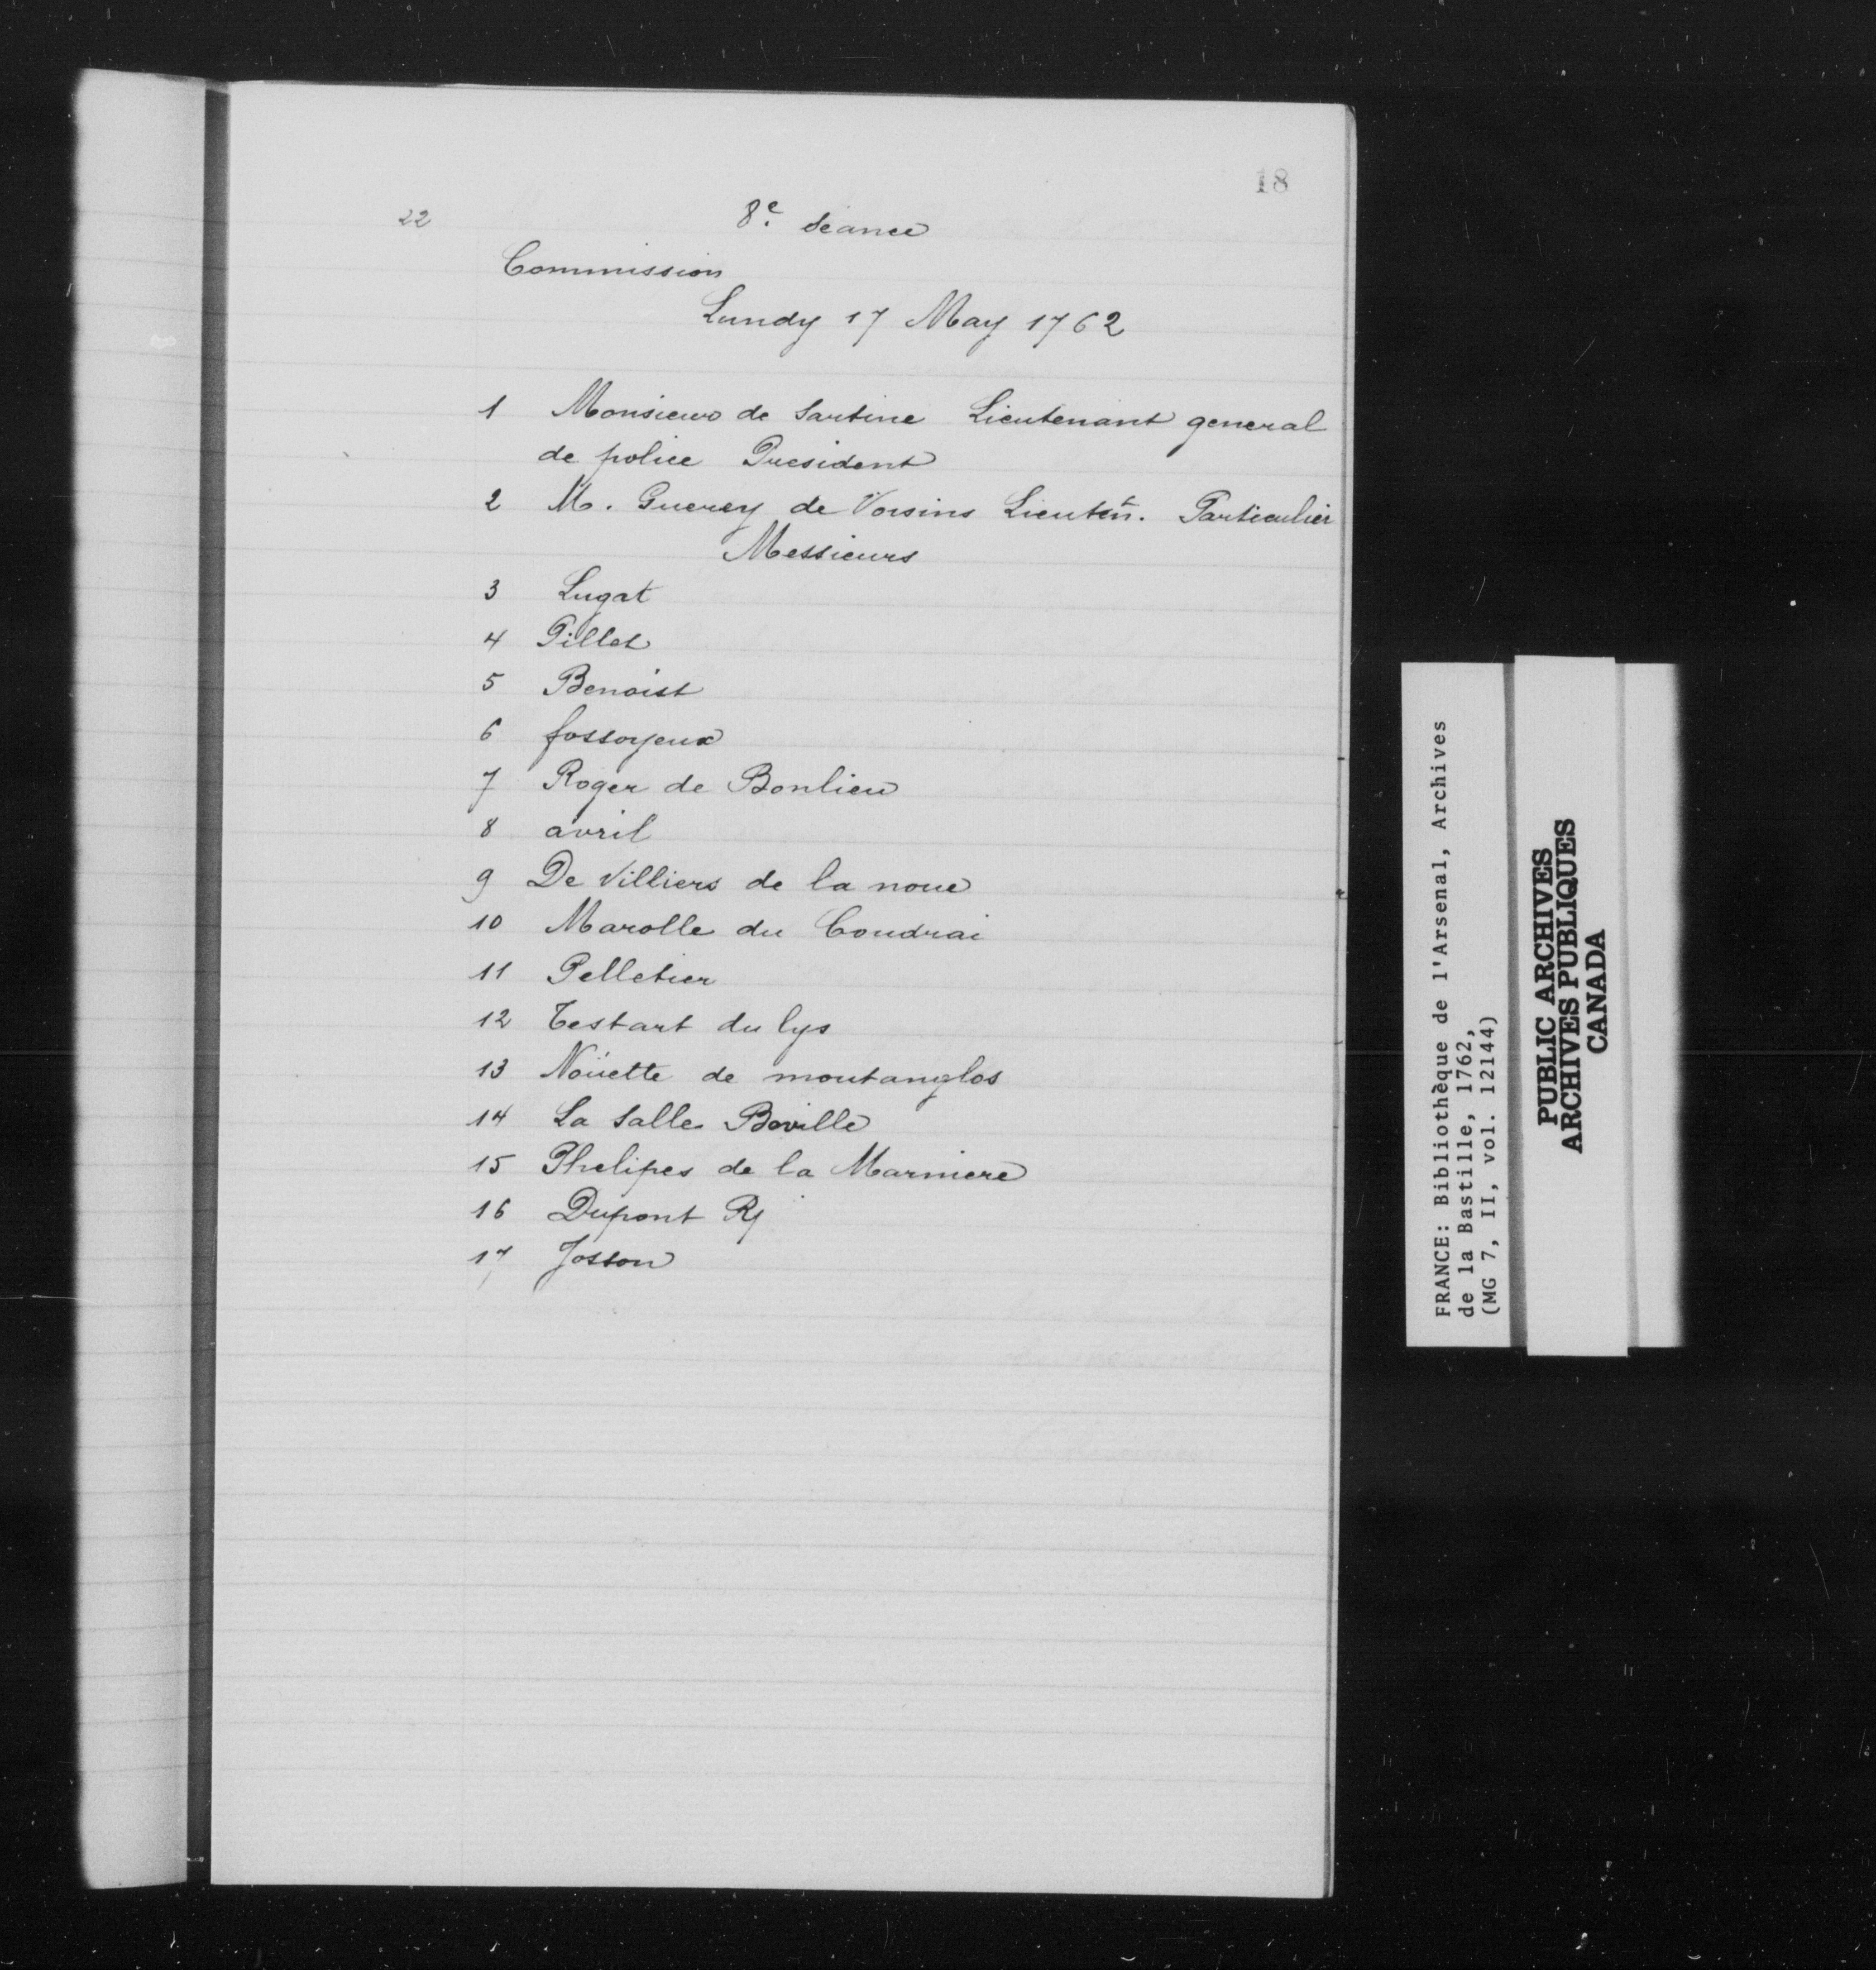 18
22
8e. séance
Commission
Lundy 17 May 1762
1 Monsieur de Sartine Lieutenant general
de police President
2 M. Guerey de Voisins Lieuten̄t. Particulier
Messieurs
3 Lugat
4 Pillet
5 Benoist
6 fossoyeux
7 Roger de Bonlieu
8 avril
9 De Villiers de la noue
10 Marolle du Coudrai
11 Pelletier
12 Testart du lys
13 Noüette de montanglos
14 La Salle Boville
15 Phelipes de la Marniere
16 Dupont Rj
17 Josson
FRANCE: Bibliothèque de l'Arsenal, Archives
de la Bastille, 1762,
(MG 7, II, vol. 12144)
PUBLIC ARCHIVES
ARCHIVES PUBLIQUES
CANADA